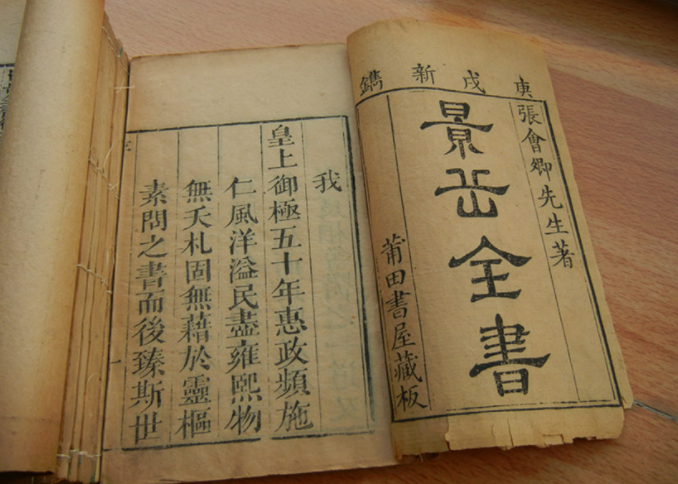 庚戌新鐫
張會卿先生著
景岳全書
莆田書屋藏板
我
皇上御極五十年惠政頻施
仁風洋溢民盡雍熙物
無夭札固無藉於靈樞
素問之書而後臻斯世